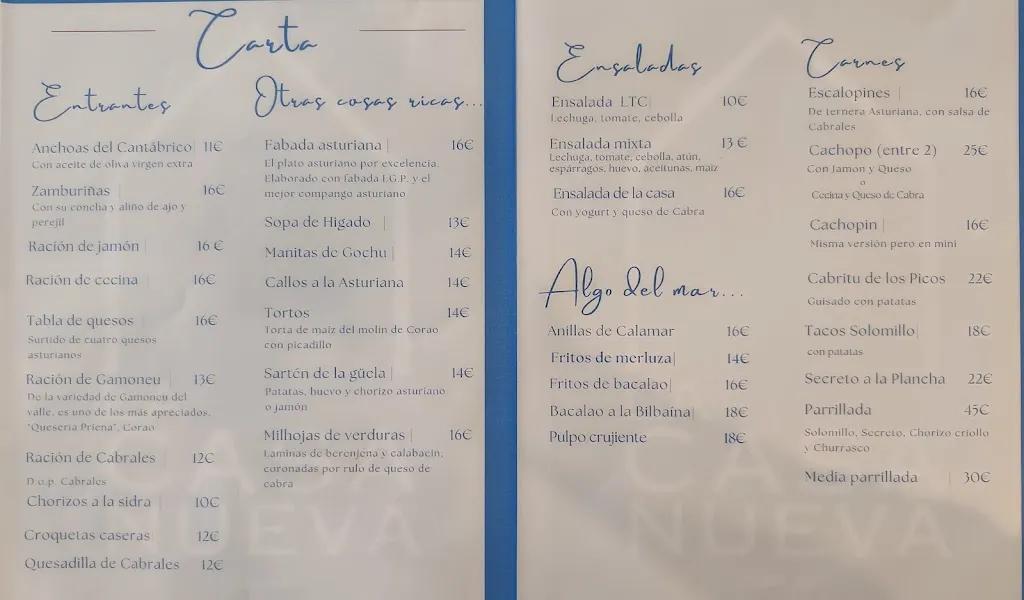 Carta
Entrantes
Anchoas del Cantábrico 11€
Con aceite de oliva virgen extra
Zamburiñas | 16€
Con su concha y aliño de ajo y
perejil
Ración de jamón | 16 €
Ración de cecina | 16€
Tabla de quesos | 16€
Surtido de cuatro quesos
asturianos
Ración de Gamoneu | 13€
De la variedad de Gamoneu del
valle, es uno de los más apreciados.
"Quesería Priena", Corao
Ración de Cabrales | 12€
D.o.p. Cabrales
Chorizos a la sidra | 10€
Croquetas caseras 12€
Quesadilla de Cabrales 12€
Otras cosas ricas...
Fabada asturiana | 16€
El plato asturiano por excelencia.
Elaborado con fabada I.G.P. y el
mejor compango asturiano
Sopa de Higado | 13€
Manitas de Gochu | 14€
Callos a la Asturiana 14€
Tortos 14€
Torta de maíz del molin de Corao
con picadillo
Sartén de la güela | 14€
Patatas, huevo y chorizo asturiano
o jamón
Milhojas de verduras | 16€
Laminas de berenjena y calabacín,
coronadas por rulo de queso de
cabra
Ensaladas
Ensalada LTC| 10€
Lechuga, tomate, cebolla
Ensalada mixta 13 €
Lechuga, tomate, cebolla, atún,
espárragos, huevo, aceitunas, maíz
Ensalada de la casa 16€
Con yogurt y queso de Cabra
Algo del mar...
Anillas de Calamar 16€
Fritos de merluza| 14€
Fritos de bacalao| 16€
Bacalao a la Bilbaína| 18€
Pulpo crujiente 18€
Carnes
Escalopines | 16€
De ternera Asturiana, con salsa de
Cabrales
Cachopo (entre 2) 25€
Con Jamon y Queso
o
Cecina y Queso de Cabra
Cachopin | 16€
Misma versión pero en mini
Cabritu de los Picos 22€
Guisado con patatas
Tacos Solomillo| 18€
con patatas
Secreto a la Plancha 22€
Parrillada 45€
Solomillo, Secreto, Chorizo criollo
y Churrasco
Media parrillada | 30€
CASA
NUEVA
CASA
NUEVA